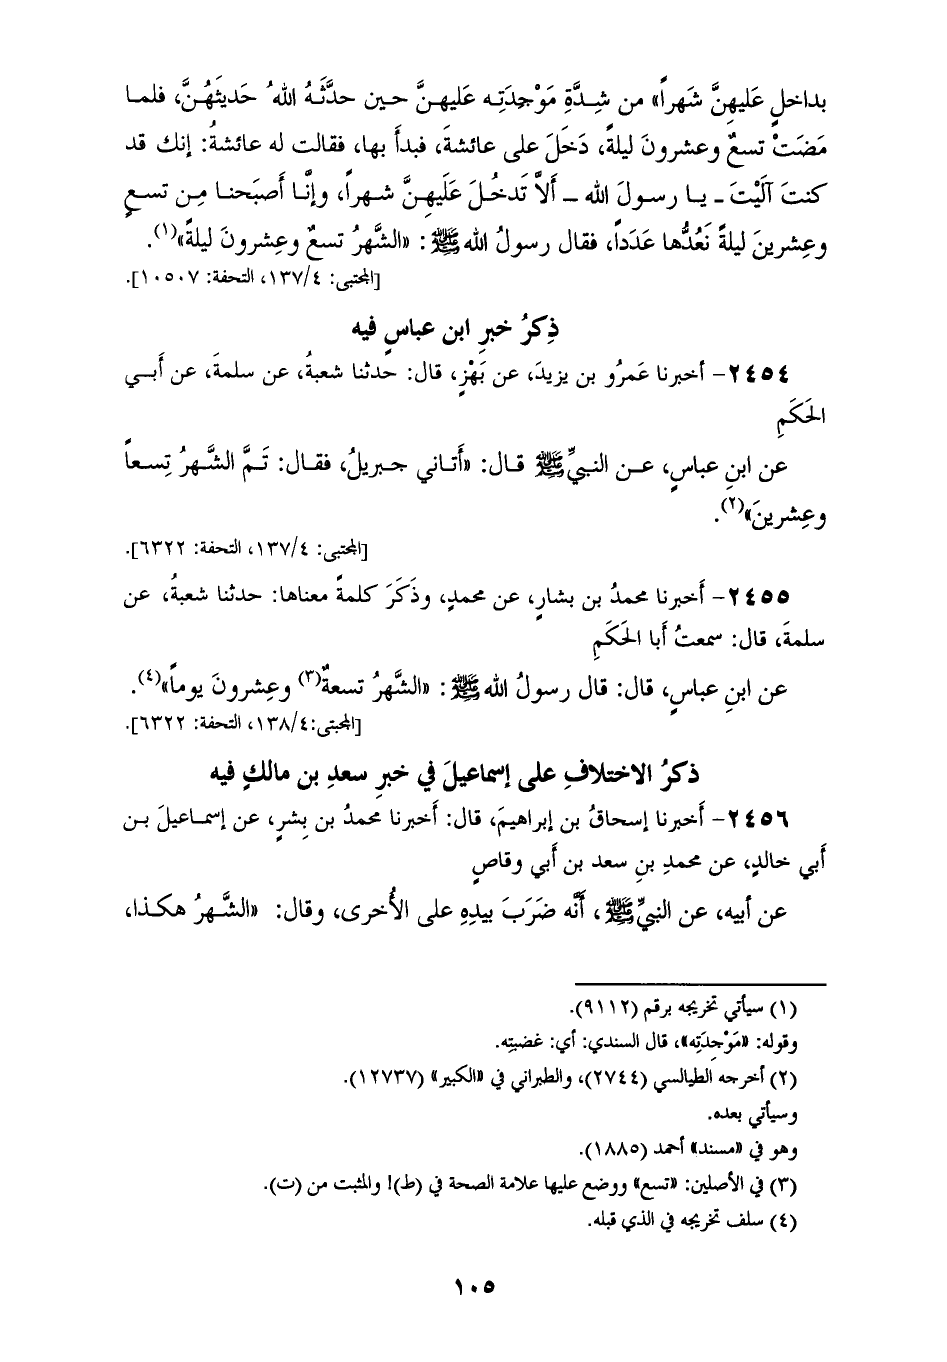 بداخلٍ عَليهِنَّ شَهراً» من شِدَّةِ مَوْجِدَتِه عَليهنَّ حين حدَّثَهُ اللهُ حَديثَهُنَّ، فلما
مَضَتْ تسعٌ وعشرونَ ليلةً، دَخَلَ على عائشةَ، فبدأَ بها، فقالت له عائشةُ: إنك قد
كنتَ آلَيْتَ ـ يا رسولَ الله ـ أَلاَّ تَدخُلَ عَلَيهِنَّ شهراً، وإنَّا أَصبَحنا مِن تسعٍ
وعِشرينَ ليلةً نَعُدُّها عَدَداً، فقال رسولُ الله ﷺ: «الشَّهرُ تسعٌ وعِشرونَ ليلةً»(١).
[المجتبى: ١٣٧/٤، التحفة: ١٠٥٠٧].
ذِكرُ خبرِ ابن عباسٍ فيه
٢٤٥٤- أخبرنا عَمرُو بن يزيدَ، عن بَهْزٍ، قال: حدثنا شعبةُ، عن سلمةَ، عن أَبي
الحَكَمِ
عن ابنِ عباسٍ، عن النبيِّ ﷺ قال: «أَتاني جبريلُ، فقال: تَمَّ الشَّهرُ تِسعاً
وعِشرينَ»(٢).
[المجتبى: ١٣٧/٤، التحفة: ٦٣٢٢].
٢٤٥٥- أَخبرنا محمدُ بن بشارٍ، عن محمدٍ، وذَكَرَ كلمةً معناها: حدثنا شعبةُ، عن
سلمةَ، قال: سمعتُ أَبا الحَكَمِ
عن ابنِ عباسٍ، قال: قال رسولُ الله ﷺ: «الشَّهرُ تسعةٌ(٣) وعِشرونَ يوماً»(٤).
[المجتبى: ١٣٨/٤، التحفة: ٦٣٢٢].
ذكرُ الاختلافِ على إسماعيلَ في خبرِ سعدِ بن مالكٍ فيه
٢٤٥٦- أَخبرنا إسحاقُ بن إبراهيمَ، قال: أَخبرنا محمدُ بن بِشرٍ، عن إسماعيلَ بن
أَبي خالدٍ، عن محمدِ بنِ سعد بن أَبي وقاصٍ
عن أبيه، عن النبيِّ ﷺ، أَنَّه ضَرَبَ بيدِهِ على الأُخرى، وقال: «الشَّهرُ هكذا،
(١) سيأتي تخريجه برقم (٩١١٢).
وقوله: «مَوْجِدَتِه»، قال السندي: أي: غضبتِه.
(٢) أخرجه الطيالسي (٢٧٤٤)، والطبراني في «الكبير» (١٢٧٣٧).
وسيأتي بعده.
وهو في «مسند» أحمد (١٨٨٥).
(٣) في الأصلين: «تسع» ووضع عليها علامة الصحة في (ط)! والمثبت من (ت).
(٤) سلف تخريجه في الذي قبله.
١٠٥